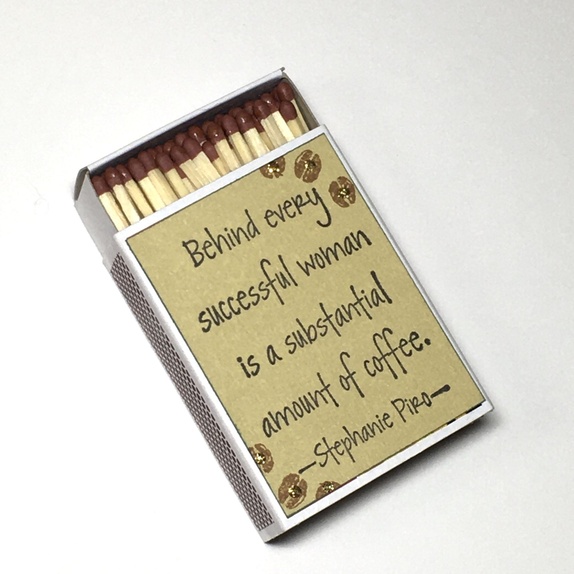 Behind every
successful woman
is a substantial
amount of coffee.
—Stephanie Piro—